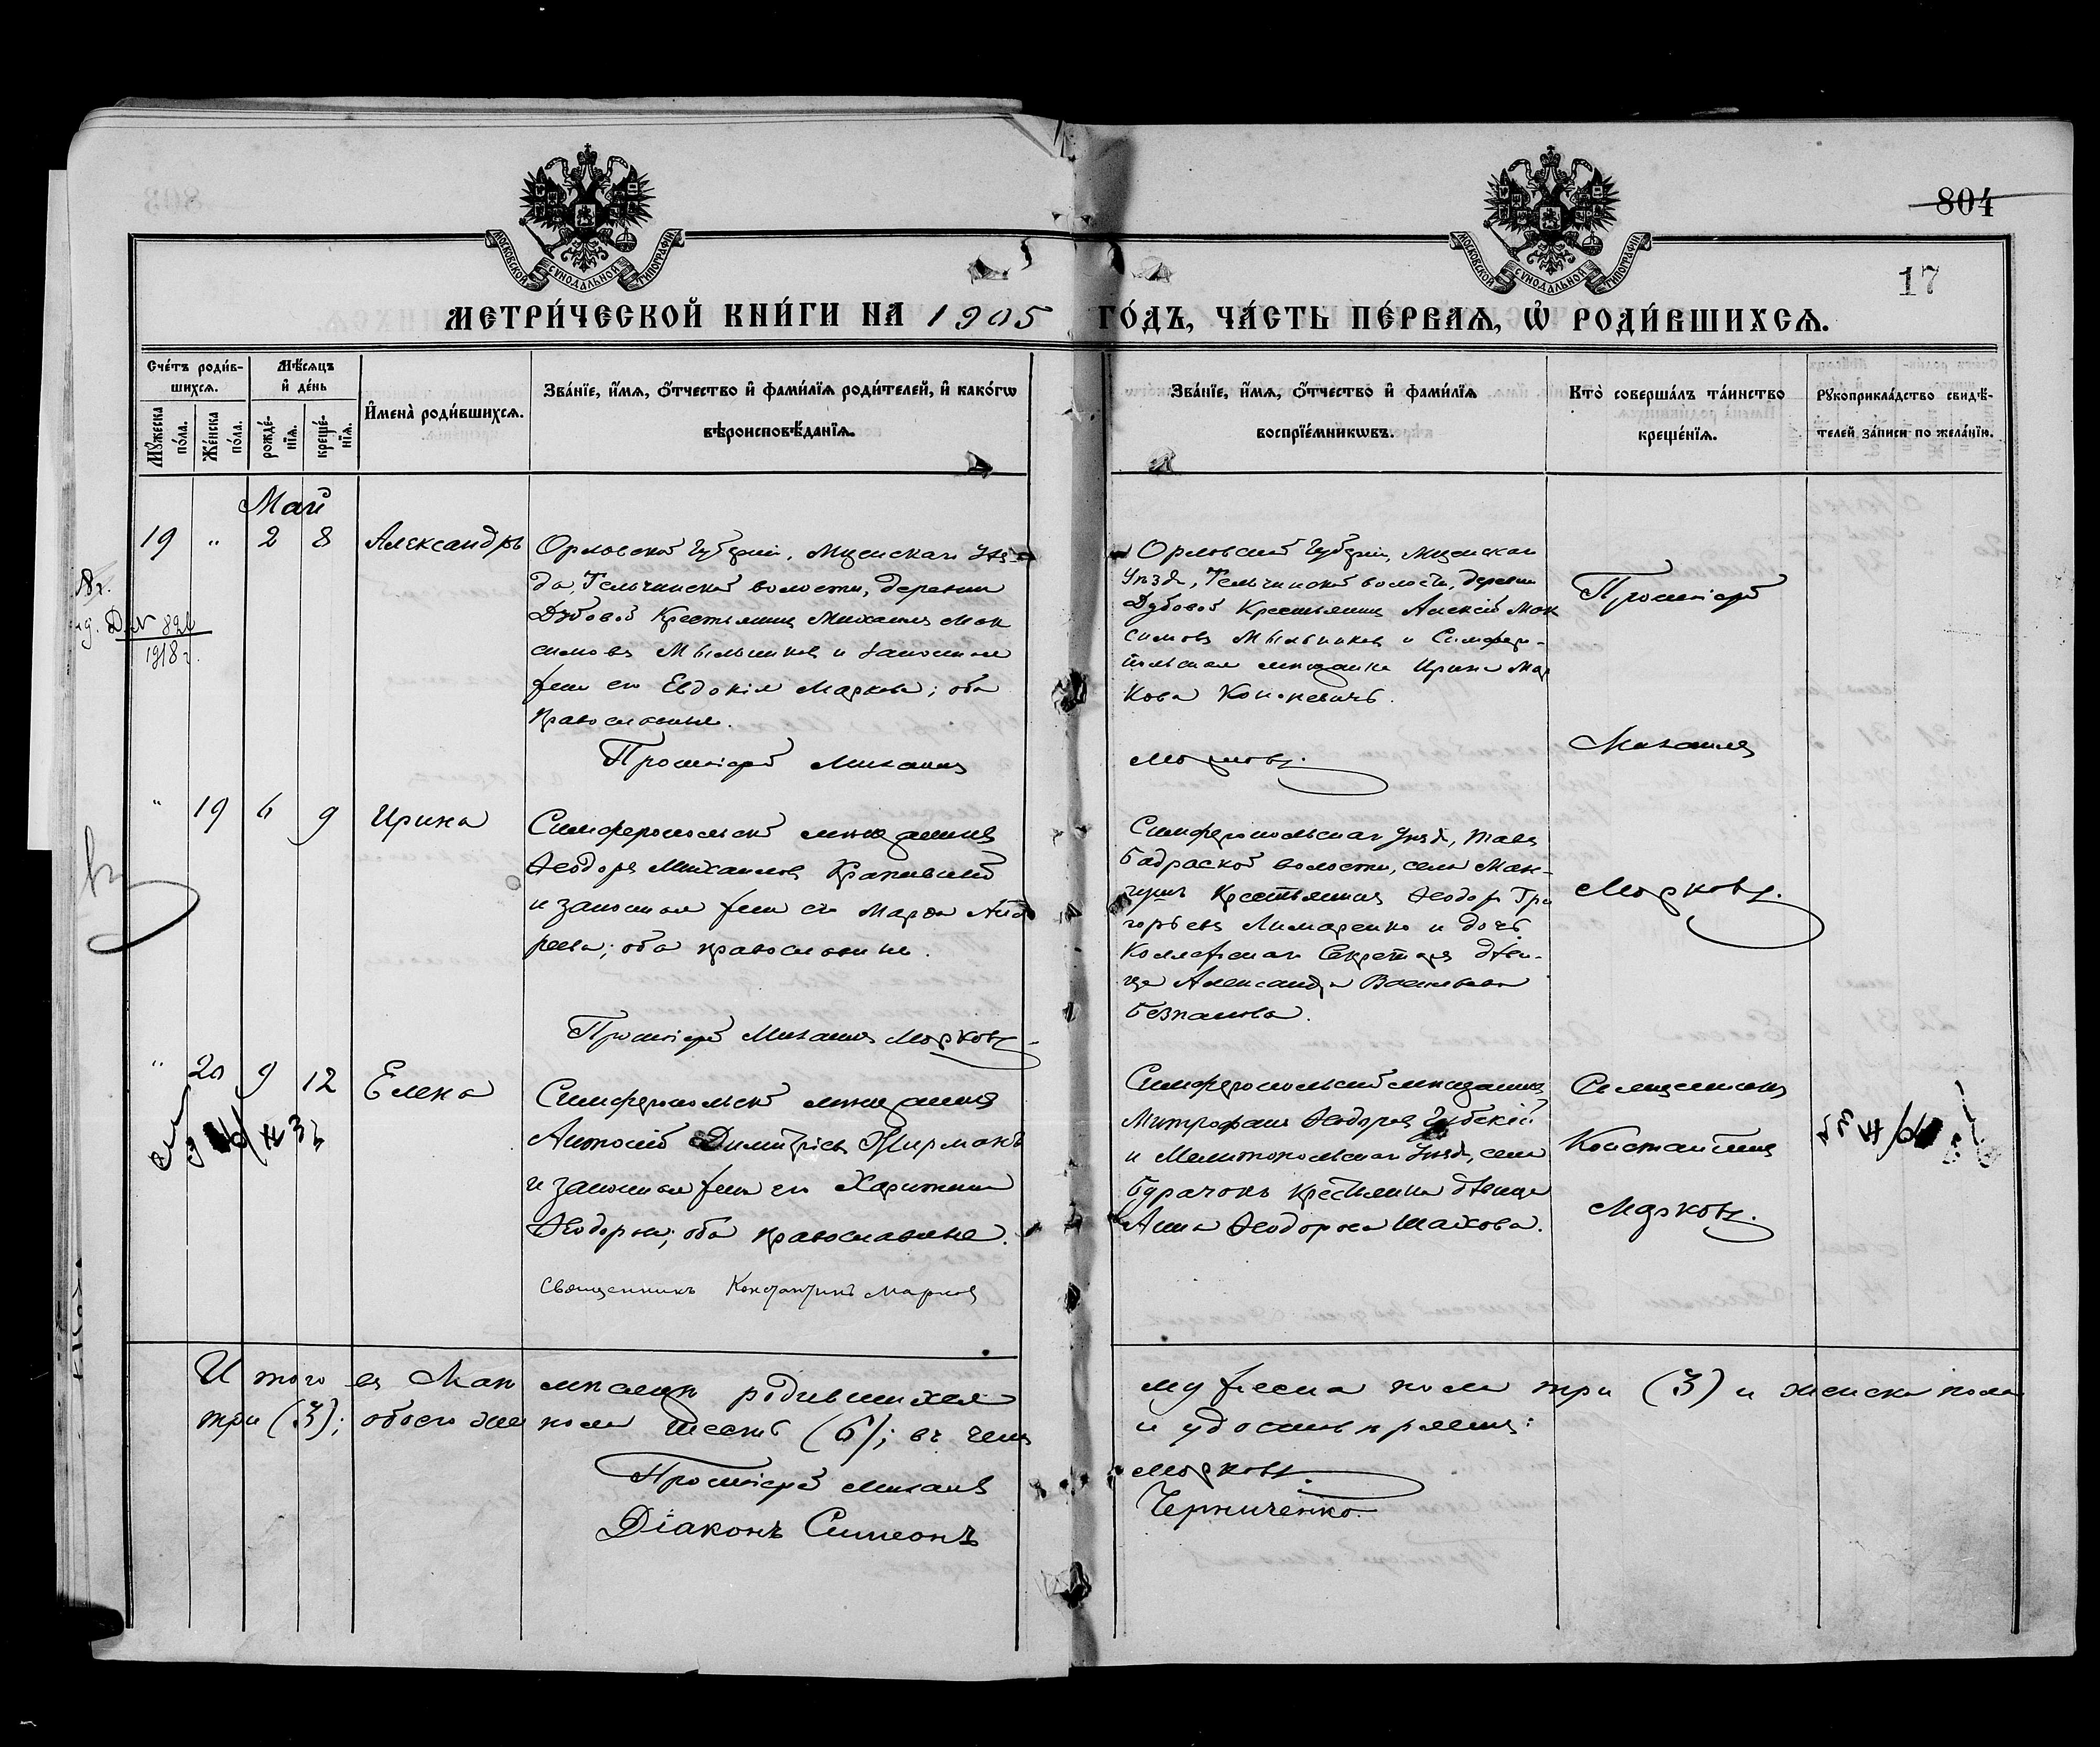 804
17
МОСКОВСКОЙ СѴНОДАЛЬНОЙ ТИПОГРАФІИ
МОСКОВСКОЙ СѴНОДАЛЬНОЙ ТИПОГРАФІИ
МЕТРИ́ЧЕСКОЙ КНИ́ГИ НА 1905 ГО́ДЪ, ЧА́СТЬ ПЕ́РВАѦ, Ѡ҆ РОДИ́ВШИХСѦ.
Сче́тъ роди́в-
шихсѧ.
Мꙋ́жеска по́ла.
Же́нска по́ла.
Мѣ́сѧцъ
и҆ де́нь
рожде́-
нїѧ.
креще́-
нїѧ.
И҆мена̀ роди́вшихсѧ.
Зва́нїе, и҆́мѧ, ѻ҆́тчество и҆ фами́лїѧ роди́телей, и҆ како́гѡ
вѣроисповѣ́данїѧ.
Зва́нїе, и҆́мѧ, ѻ҆́тчество и҆ фами́лїѧ
воспрїе́мникѡвъ.
Кто̀ соверша́лъ та́инство
креще́нїѧ.
Рꙋкоприкла́дство свидѣ́-
телей за́писи по жела́нїю.
Май
19 " 2 8 Александръ
Орловской Губерніи, Мценскаго Уѣз-
да, Тельчинской волости, деревни
Дубовой Крестьянинъ Михаилъ Мак
симовъ Мыльниковъ и законная
жена его Евдокія Маркова; оба
православные.
Протоіерей Михаилъ
Орловской Губерніи, Мценскаго
Уѣзда, Тельчинской волости, деревни
Дубовой Крестьянинъ Алексій Мак
симовъ Мыльниковъ и Симферо-
польская мѣщанка Ирина Мар
кова Кононевичъ.
Марковъ.
Протоіерей
Михаилъ
Марковъ.
№ 826
1918 г.
" 19 6 9 Ирина
Симферопольскій мѣщанинъ
Ѳеодоръ Михаиловъ Крапивный
и законная жена его Марѳа Анд
реева; оба православные.
Протоіерей Михаилъ Марковъ
Симферопольскаго Уѣзда,
волости, села Ман-
гушъ Крестьянинъ Ѳеодоръ Гри
горьевъ Лимаренко и дочь
Коллежскаго Секретаря дѣви-
ца Александра Васильева
" 20 9 12 Елена
Симферопольскій мѣщанинъ
Антоній Димитріевъ Фурманъ
и законная жена его Харитина
Ѳеодорова; оба православные.
Священникъ Константинъ Марковъ
Симферопольскій мѣщанинъ
Митрофанъ Ѳеодоровъ Губскій
и Мелитопольскаго Уѣзда, села
Бурачокъ крестьянка дѣвица
Анна Ѳеодорова Шахова.
Священникъ
Константинъ
Марковъ.
Итого въ Маѣ мѣсяцѣ родившихся мужеска пола три (3) и женска пола
три (3); обоего же пола шесть (6); въ чемъ и удостовѣряемъ:
Протоіерей Михаилъ Марковъ.
Діаконъ Симеонъ Черниченко.